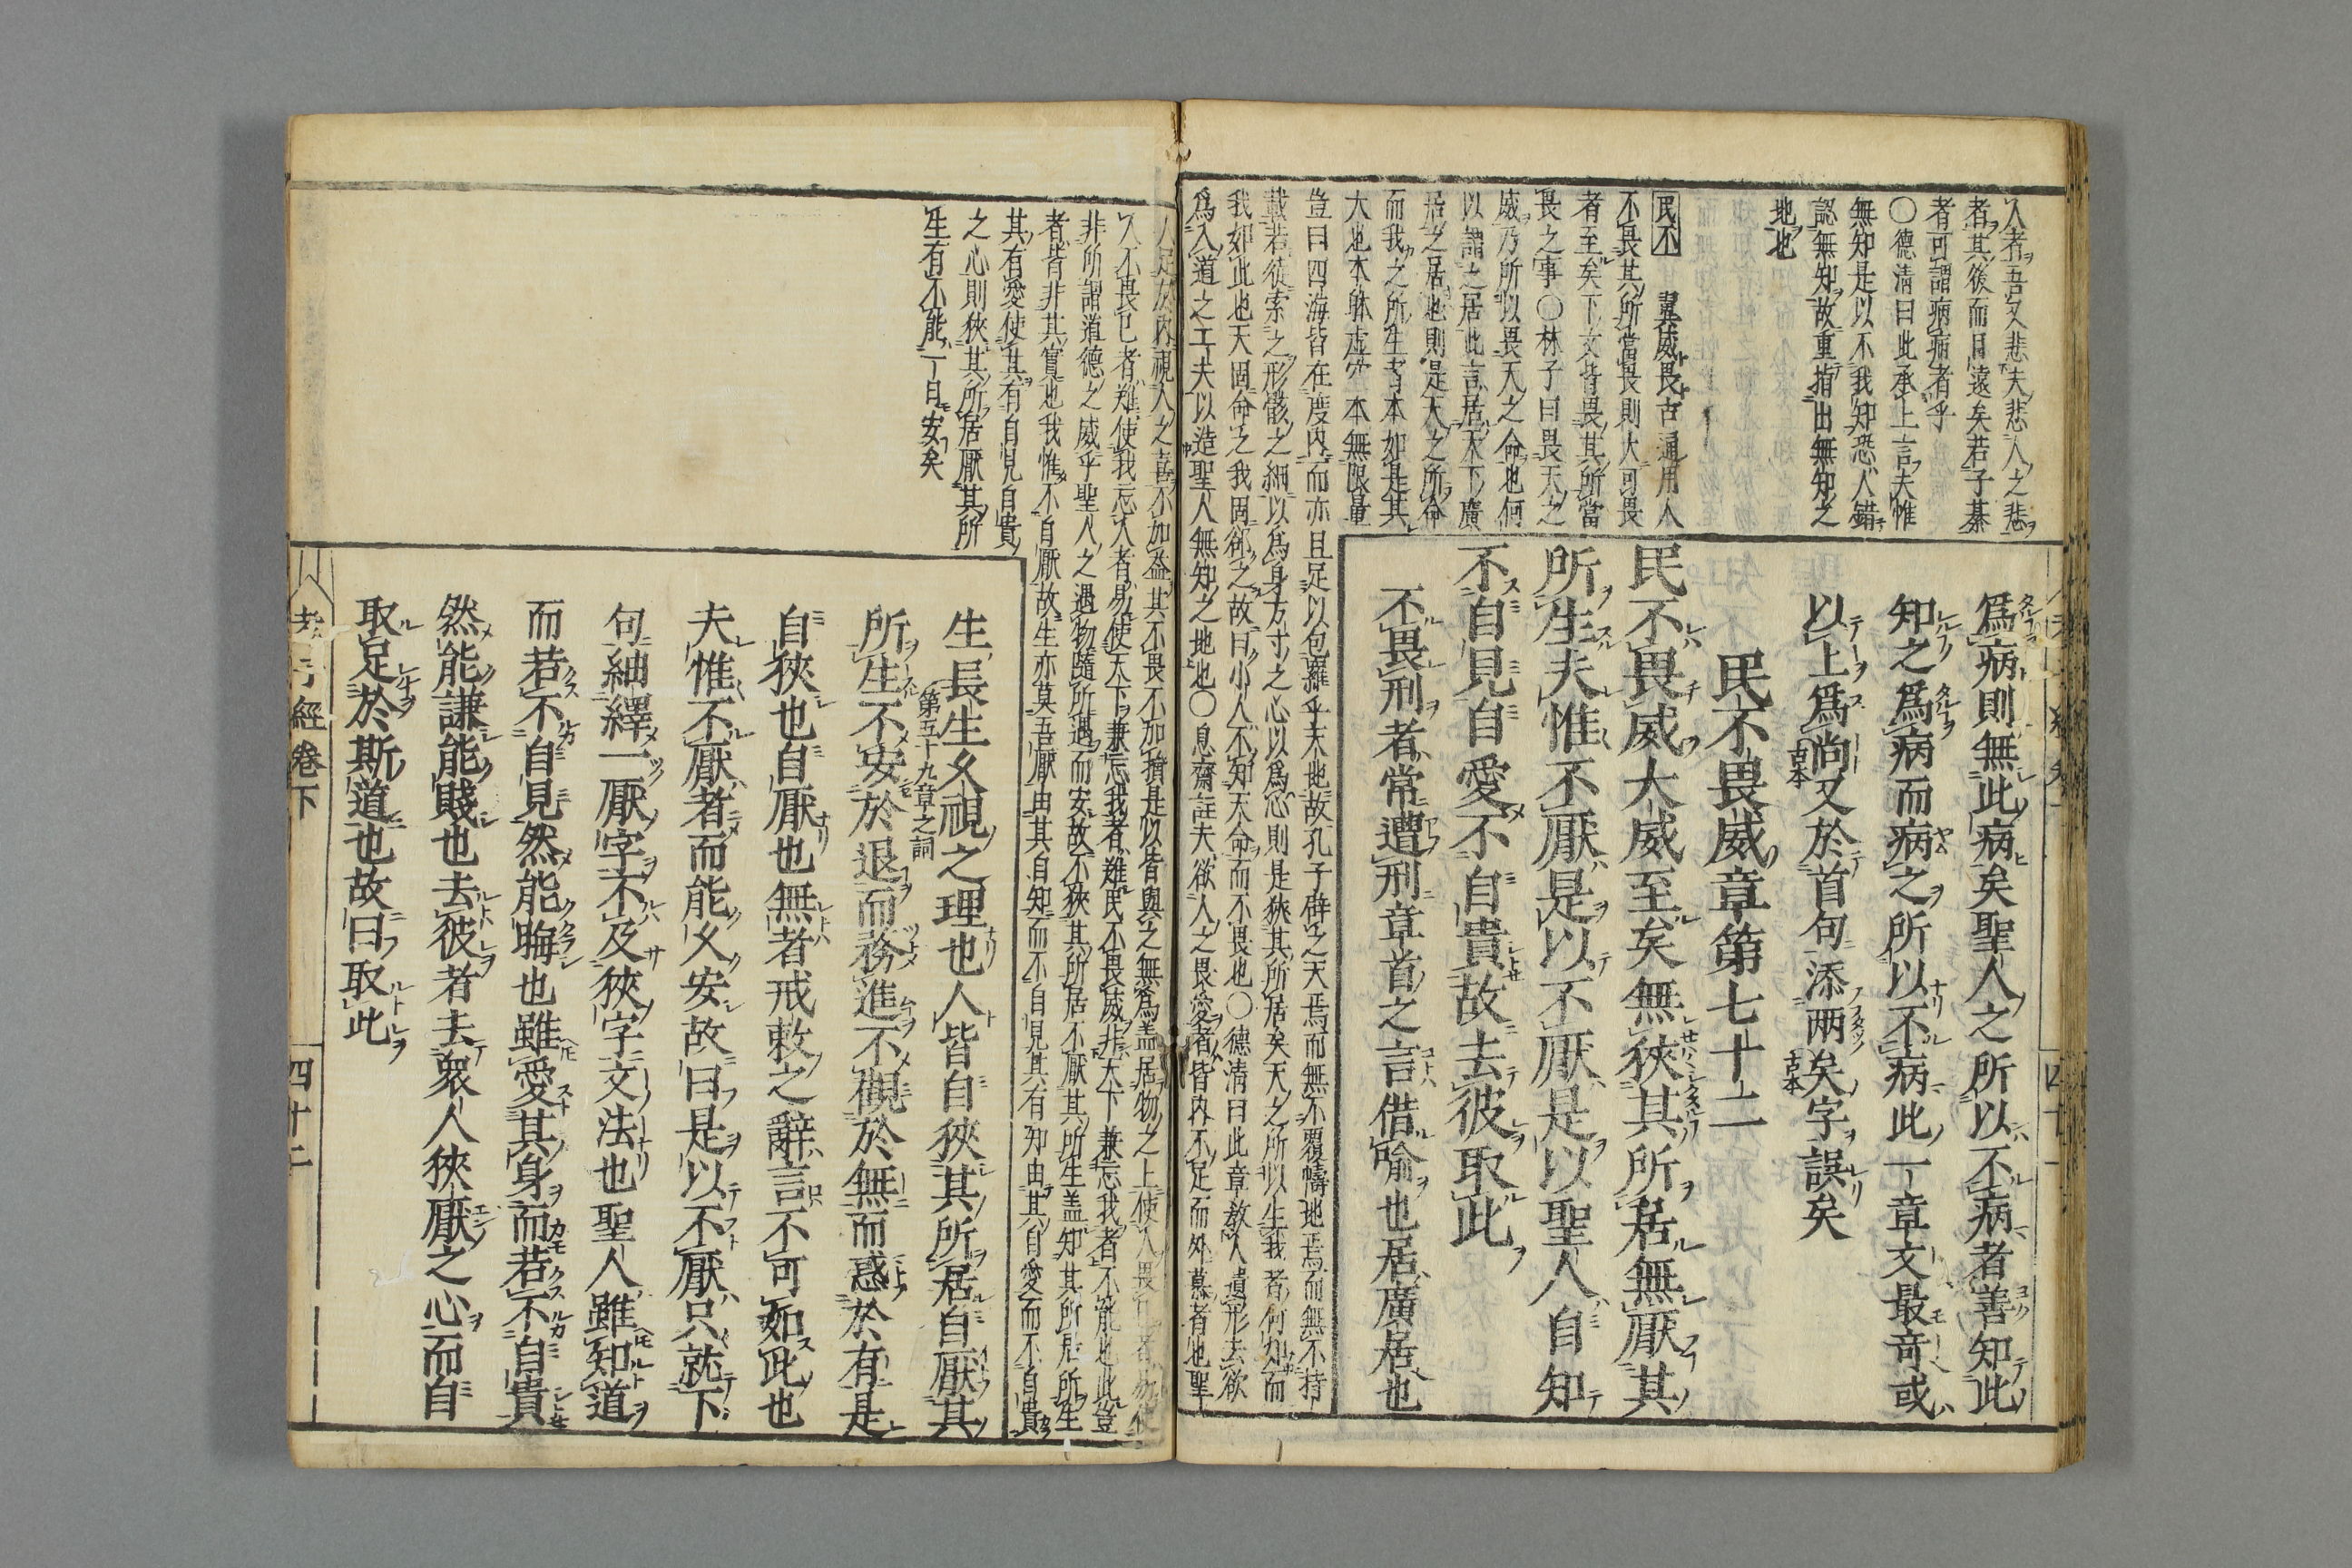 人者吾又悲夫悲人之悲
者其後而日遠矣若子綦
者可謂病病者乎
〇德淸曰此承上言夫惟
無知是以不我知恐人錯
認無知故重指出無知之
地也
民不 翼威畏古通用人
不畏其所當畏則大可畏
者至矣下文皆畏其所當
畏之事〇林子曰畏天之
威乃所以畏天之命也何
以謂之居此言居天下廣
居之居也則是天之所命
而我之所生者本如是其
大也本體虛空本無限量
豈曰四海皆在度内而亦且足以包羅乎天地故孔子辟之天焉而無不覆幬地焉而無不持
載若徒索之形骸之細以爲身方寸之心以爲心則是狹其所居矣天之所以生我者何如而
我如此也天固命之我固卻之故曰小人不知天命而不畏也〇德淸曰此章教人遺形去欲
爲入道之工夫以造聖人無知之地也〇息齋註夫欲人之畏愛者皆内不足而外慕者也聖
爲病則無此病矣聖人之所以不病者善知此
知之爲病而病之所以不病此一章文最奇或
以上爲尚又於首句添兩矣字誤矣
古本
古本
民不畏威章第七十二
民不畏威大威至矣無狹其所居無厭其
所生夫惟不厭是以不厭是以聖人自知
不自見自愛不自貴故去彼取此
不畏刑者常遭刑章首之言借喩也居廣居也
人足於内視人之喜不加益其不畏不加損是以皆與之無爲盖居物之上使人畏
人不畏已者難使我忘人者易使天下兼忘我者難民不畏威非天下兼忘我者不能也此豈
非所謂道德之威乎聖人之遇物隨所遇而安故不狹其所居不厭其所生盖知其所居所生
者皆非其實也我惟不自厭故生亦莫吾厭由其自知而不自見其有知由其自愛而不自貴
其有愛使其有自見自貴
之心則狹其所居厭其所
生有不能一日安矣
生長生久視之理也人皆自狹其所居自厭其
第五十九章之詞
所生不安於退而務進不觀於無而惑於有是
自狹也自厭也無者戒敕之辭言不可如此也
夫惟不厭者而能久安故曰是以不厭只就下
句紬繹一厭字不及狹字文法也聖人雖知道
而若不自見然能晦也雖愛其身而若不自貴
然能謙能賤也去彼者去衆人狹厭之心而自
取足於斯道也故曰取此
老子經卷下
四十二